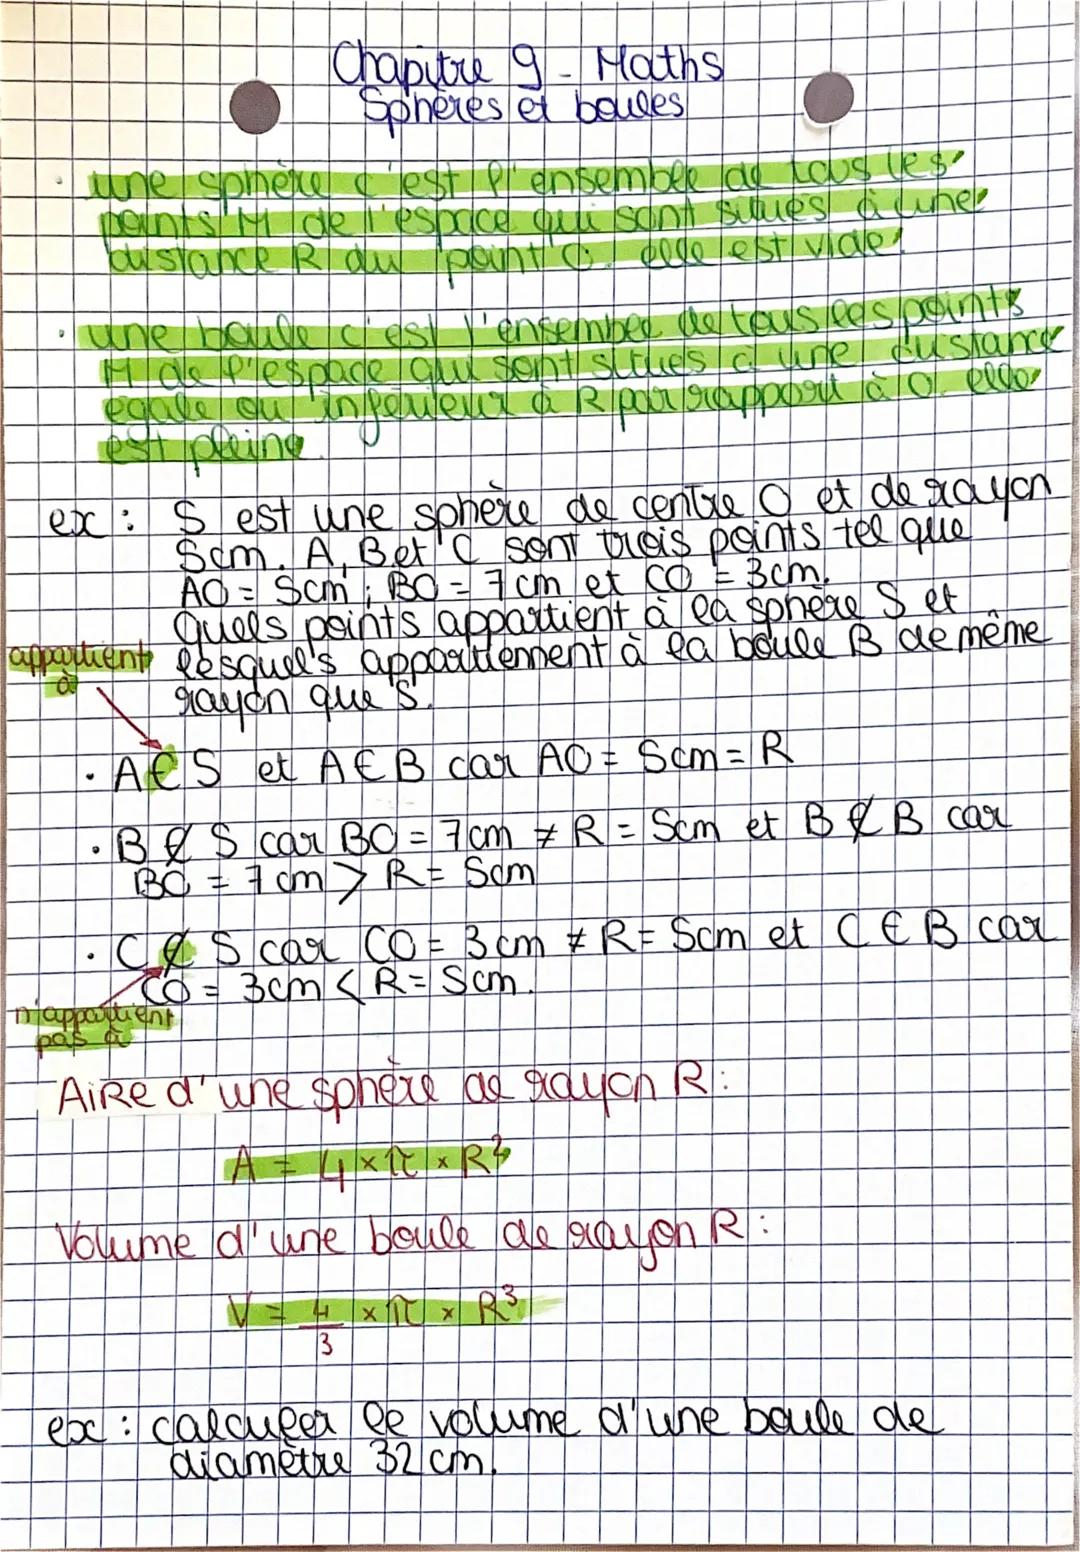 Chapitre 9 - Maths
Sphères et boules
• une sphère c'est l'ensemble de tous les
points M de l'espace qui sont situés à une
distance R du point O. elle est vide.
• une boule c'est l'ensemble de tous les points
M de l'espace qui sont situés à une distance
égale ou inférieur à R par rapport à O. elle
est pleine.
ex : S est une sphère de centre O et de rayon
5cm. A, B et C sont trois points tel que
AO = 5cm ; BO = 7cm et CO = 3cm.
Quels points appartient à la sphère S et
lesquels appartiennent à la boule B de même
rayon que S.
appartient
à
• A ∈ S et A ∈ B car AO = 5cm = R
• B ∉ S car BO = 7cm ≠ R = 5cm et B ∉ B car
BO = 7cm > R = 5cm
• C ∉ S car CO = 3cm ≠ R = 5cm et C ∈ B car
CO = 3cm < R = 5cm.
n'appartient
pas à
Aire d'une sphère de rayon R :
A = 4 × π × R²
Volume d'une boule de rayon R :
V = 4/3 × π × R³
ex : calculer le volume d'une boule de
diamètre 32 cm.